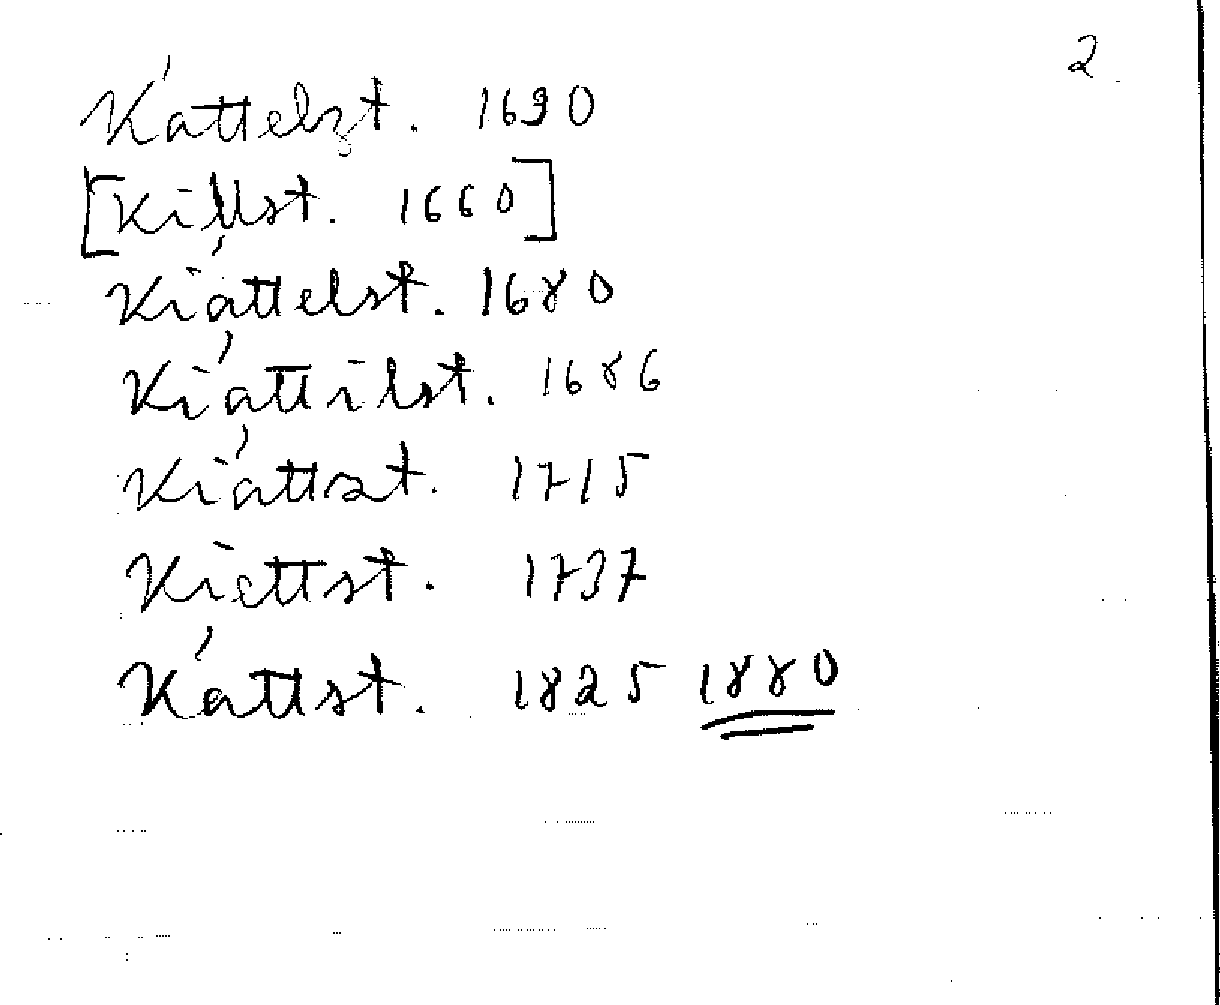 2.
Káttelst. 1630
[Killst. 1660]
Kiáttelst. 1680
Kiáttilst. 1686
Kiáttst. 1715
Kiettst. 1737
Káttst. 1825 1880